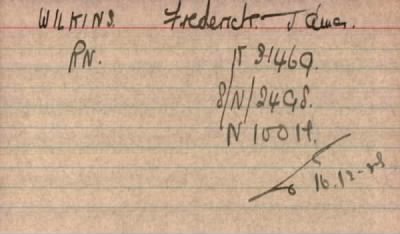 WILKINS. Frederick. James.
RN.
31469.
8/N/2498.
N 10014.
16.12-